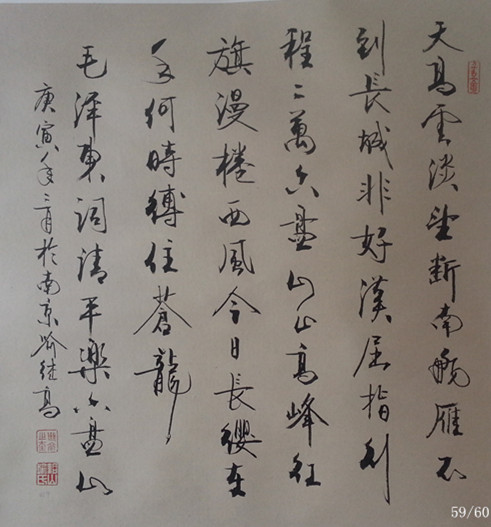 天高雲淡望斷南飛雁不
到長城非好漢屈指行
程二萬六盤山上高峰紅
旗漫捲西風今日長纓在
手何時縛住蒼龍
毛澤東詞清平樂六盤山
庚寅年三月於南京喻继高
59/60